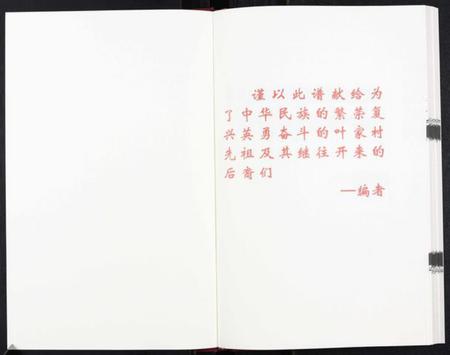 谨以此谱献给为
了中华民族的繁荣复
兴英勇奋斗的叶家村
先祖及其继往开来的
后裔们
—编者